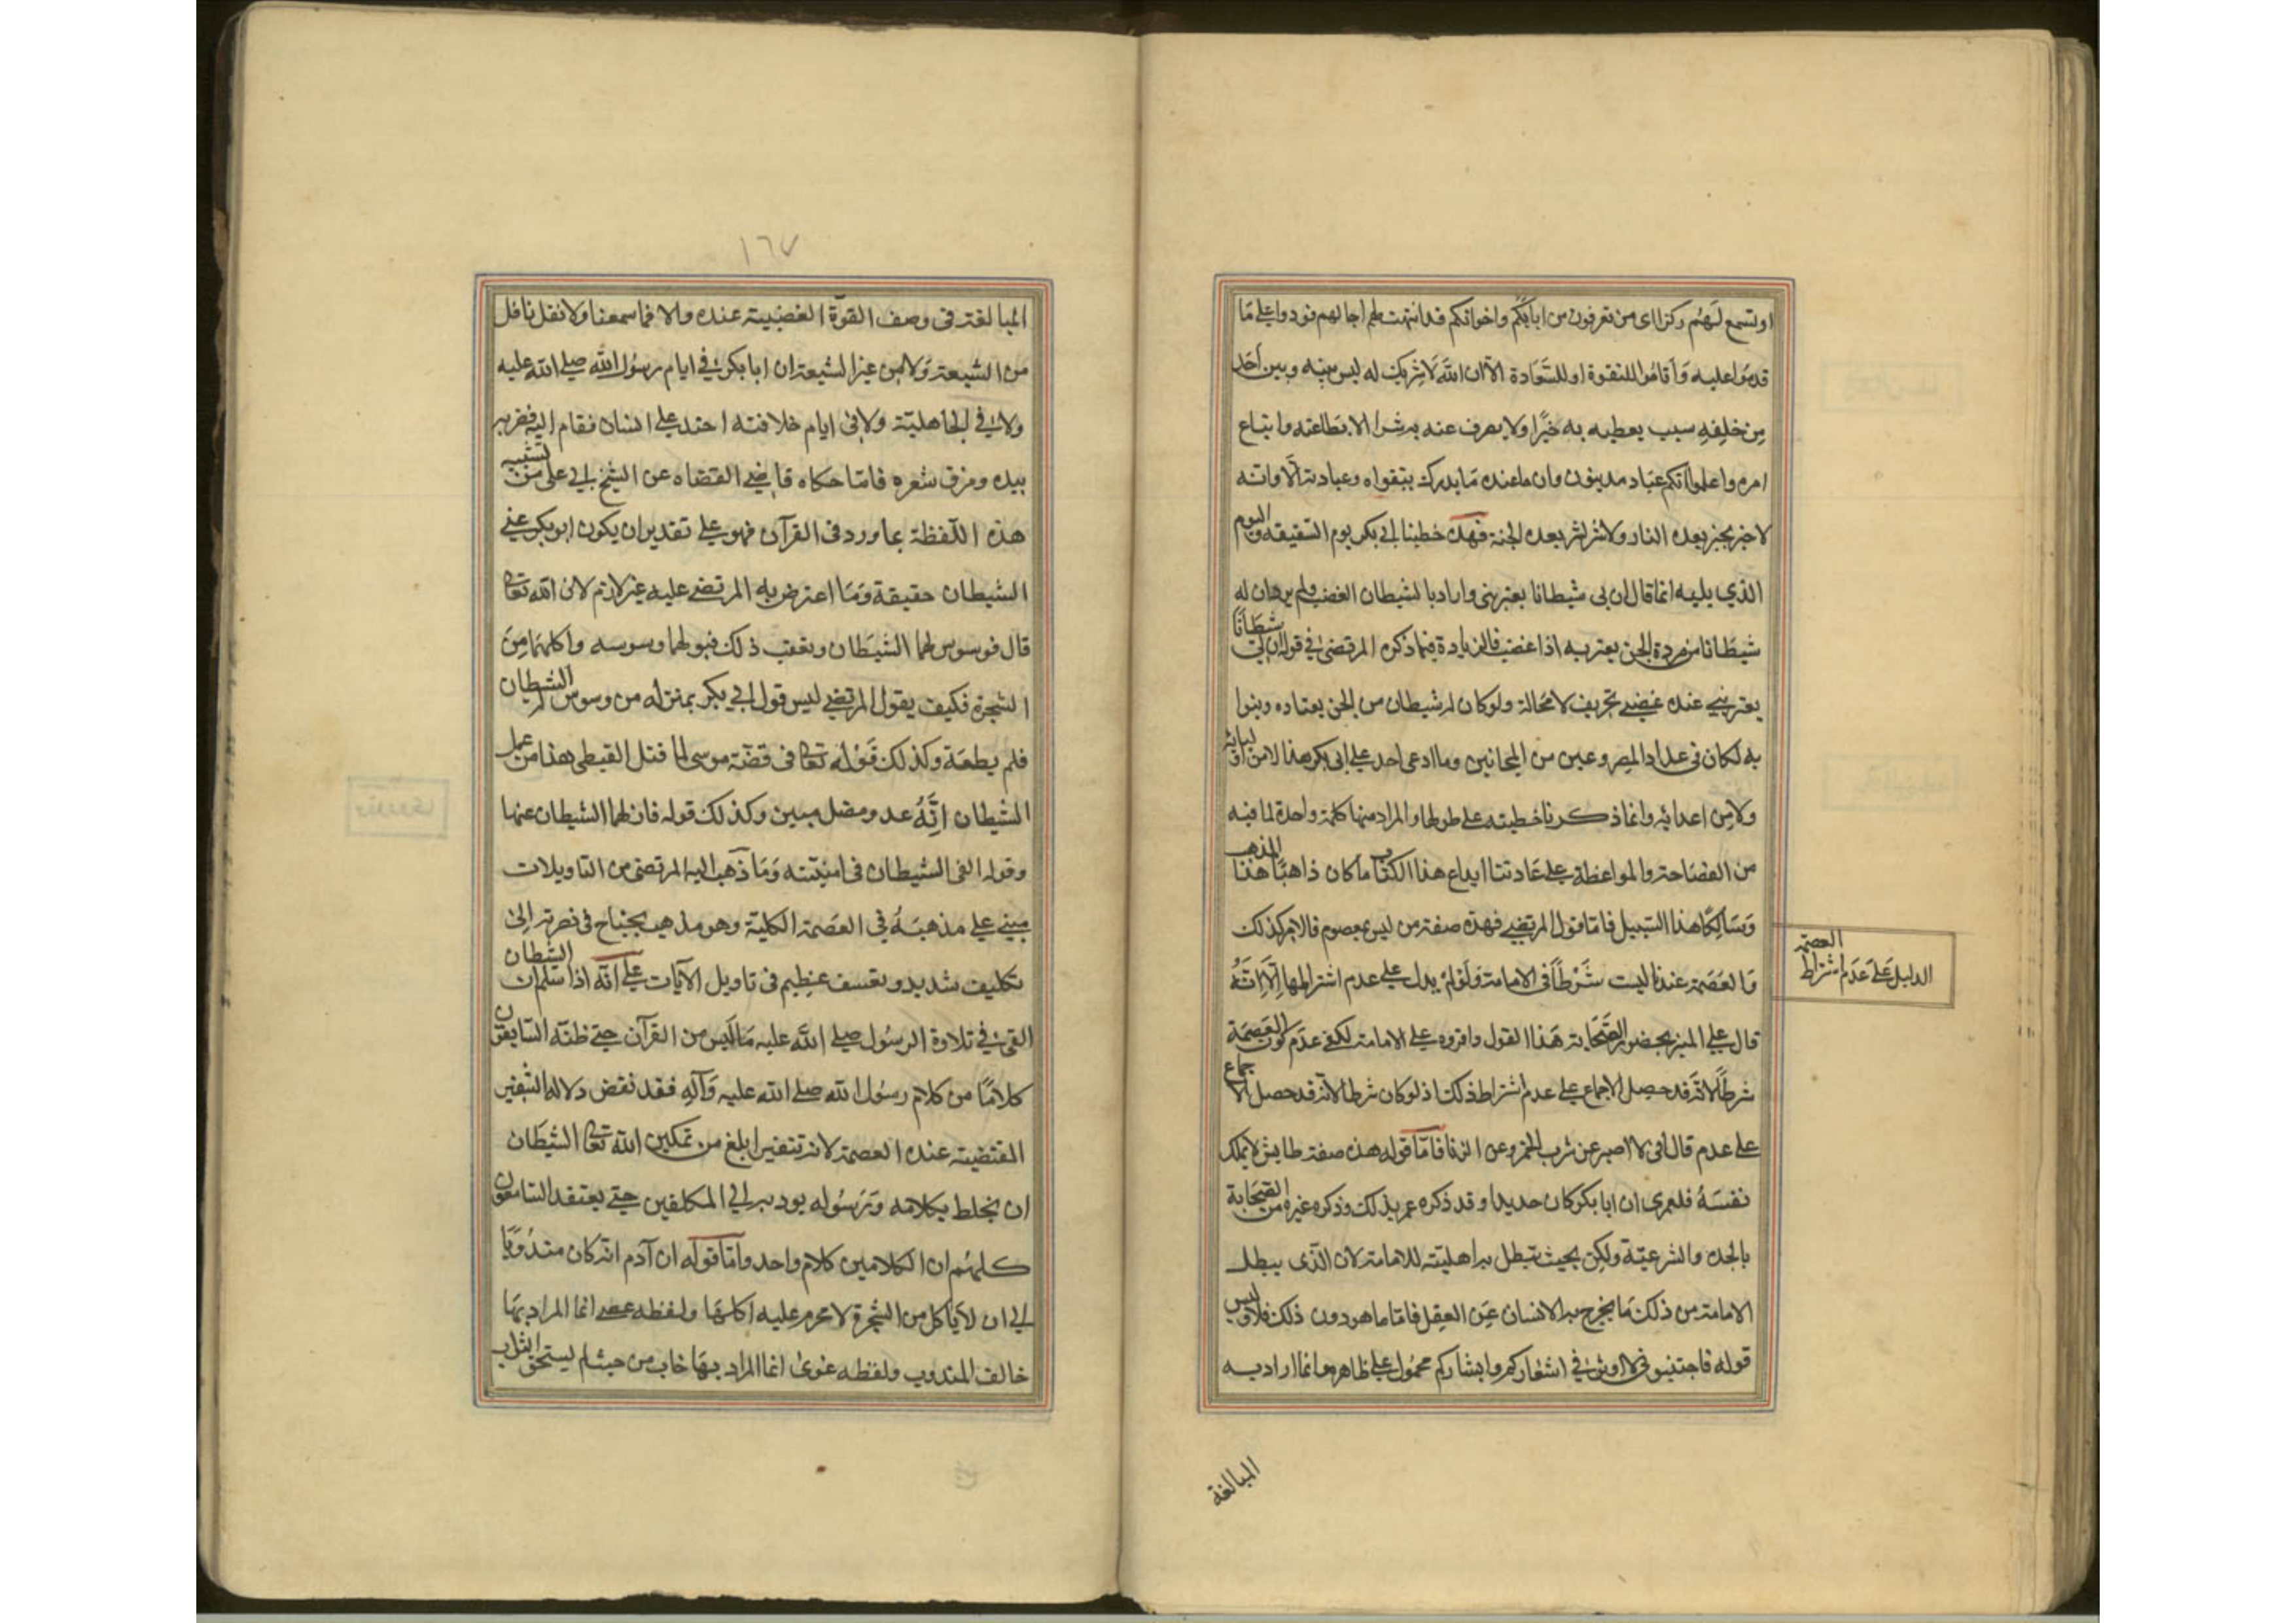 او تسمع لهم ركزا اى من تعرفون من ابائكم واخوانكم قد انتهت بهم اجالهم فوردوا على ما
قدموا عليه واقاموا للشقوة او للسعادة الا ان الله لا شريك له ليس بينه وبين احد
من خلقه سبب يعطيه به خيرا ولا يصرف عنه به شرا الا بطاعته واتباع
امره واعلموا انكم عباد مدينون وان ما عنده ما يدرك بتقواه وعبادته الا وانه
لا خير بخير بعده النار ولا شر بشر بعده الجنة فهذه خطبتا ابي بكر يوم السقيفة واليوم
الذي يليه انما قال ان بى شيطانا يعترينى واراد بالشيطان الغضب ولم يرد ان له
شيطانا من مردة الجن يعتريه اذا غضب فالزيادة فيما ذكره المرتضى في قوله ان لي شيطانا
يعتريني عند غضبي تحريف لا محالة ولو كان له شيطان من الجن يعتاده وينوا
به لكان فى عداد المصروعين من المجانين وما ادعى احد على ابى بكر هذا لا من اوليائه
ولا من اعدائه وانما ذكرنا خطبته على طولها والمراد منها كلمة واحدة لما فيه
من الفصاحة والمواعظة على عادتنا ايداع هذا الكتاب ما كان ذاهبا هذا المذهب
وسالكا هذا السبيل فاما قول المرتضى فهذه صفة من ليس بمعصوم فالامر كذلك
والعصمة عندنا ليست شرطا فى الامامة ولو لم يدل على عدم اشتراطها الا انه
الدليل على عدم اشتراط العصمة
قال على المنبر بحضور الصحابة هذا القول واقروه على الامامة لكفى عدم كون العصمة
شرطا لانه قد حصل الاجماع على عدم اشتراط ذلك اذ لو كان شرطا لانه قد حصل الاجماع
على عدم قال انى لا اصبر عن شرب الخمر وعن الزنا فاما قوله هذه صفة طايش لا يملك
نفسه فلعمرى ان ابا بكر كان حديدا وقد ذكره عمر بذلك وذكره غيره من الصحابة
بالحدة والشرعية ولكن بحيث تبطل به اهليته للامامة لان الذى يبطل
الامامة من ذلك ما يخرج به الانسان عن العقل فاما ما هو دون ذلك فلا وليس
قوله فاجتنبونى لا اوثر في اشعاركم وابشاركم محمول على ظاهره وانما اراد به
المبالغة
١٦٧
المبالغة فى وصف القوة الغضبية عنده والا فما سمعنا ولا نقل ناقل
من الشيعة ولا من غير الشيعة ان ابا بكر في ايام رسول الله صلى الله عليه
ولا في الجاهلية ولا فى ايام خلافته احتد على انسان فقام اليه فضربه
بيده ومزق شعره فاما حكاه قاضي القضاه عن الشيخ ابي على من تشبيه
هذه اللفظة بما ورد فى القرآن فهو على تقدير ان يكون ابو بكر عني
الشيطان حقيقة وما اعترض به المرتضى عليه غير لازم لان الله تعالى
قال فوسوس لهما الشيطان وتعقب ذلك قبولهما وسوسه واكلهما من
الشجرة فكيف يقول المرتضى ليس قول ابي بكر بمنزلة من وسوس له الشيطان
فلم يطعه وكذلك قوله تعالى فى قصة موسى لما قتل القبطى هذا من عمل
الشيطان انه عدو مضل مبين وكذلك قوله فازلهما الشيطان عنها
وقوله القى الشيطان فى امنيته وما ذهب اليه المرتضى من التاويلات
مبني على مذهبه في العصمة الكلية وهو مذهب يحتاج فى نصرته الى
تكليف شديد وتعسف عظيم فى تاويل الآيات على انه اذا سلم ان الشيطان
القى في تلاوة الرسول صلى الله عليه ما ليس من القرآن حتى ظنه السابقون
كلاما من كلام رسول الله صلى الله عليه وآله فقد نقض دلالة التنفير
المقتضية عنده العصمة لانه تنفير ابلغ من تمكين الله تعالى الشيطان
ان يخلط بكلامه ورسوله يود به الي المكلفين حتى يعتقد السامعون
كلهم ان الكلامين كلام واحد واما قوله ان آدم انه كان مندوبا
الي ان لا ياكل من الشجرة لا محرم عليه اكلها ولفظه عصى انما المراد بها
خالف المندوب ولفظه غوى انما المراد بها خاب من حيث لم يستحق الثواب